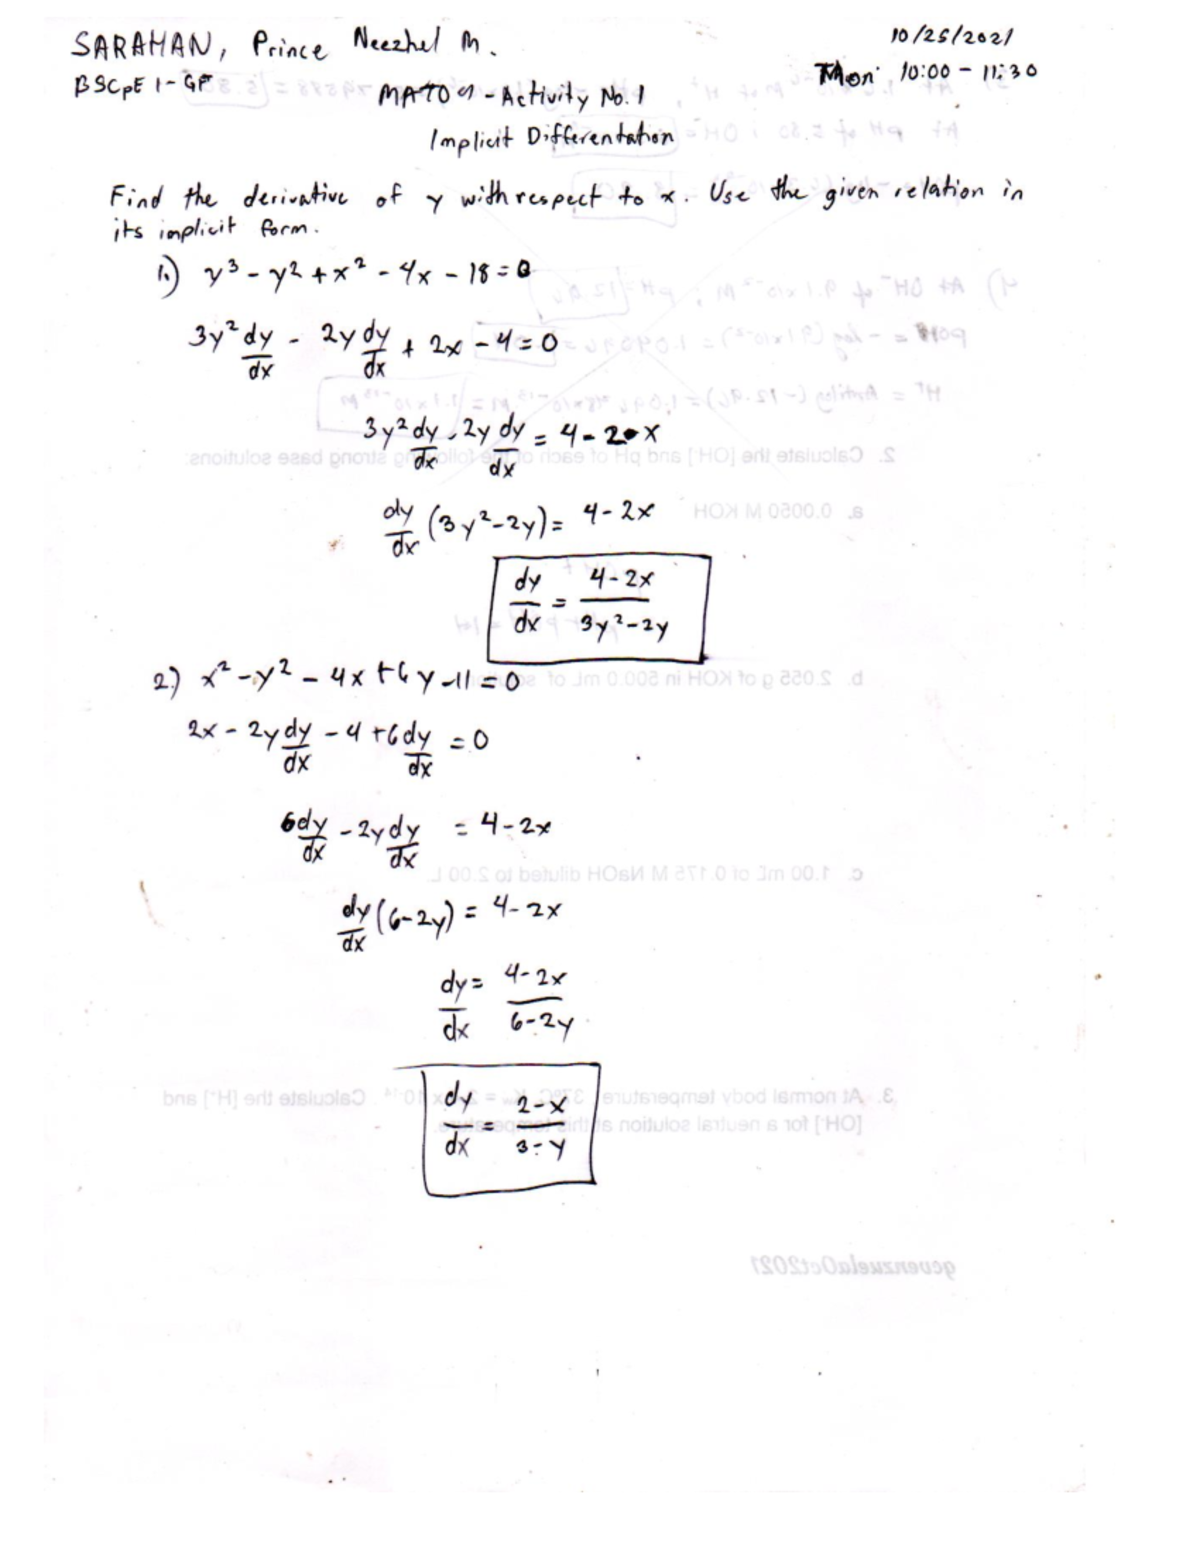 SARAHAN, Prince Neezhel M. 10/25/2021
BSCpE 1-GF Mon 10:00 - 11:30
MAT04 - Activity No. 1
Implicit Differentation
Find the derivative of y with respect to x. Use the given relation in
its implicit form.
1.) y³ - y² + x² - 4x - 18 = 0
3y² dy/dx - 2y dy/dx + 2x - 4 = 0
3y² dy/dx - 2y dy/dx = 4 - 2x
dy/dx (3y² - 2y) = 4 - 2x
dy/dx = 4 - 2x / 3y² - 2y
2.) x² - y² - 4x + 6y - 11 = 0
2x - 2y dy/dx - 4 + 6 dy/dx = 0
6 dy/dx - 2y dy/dx = 4 - 2x
dy/dx (6 - 2y) = 4 - 2x
dy/dx = 4 - 2x / 6 - 2y
dy/dx = 2 - x / 3 - y
2. Calculate the [OH⁻] and pH of each of the following strong base solutions:
a. 0.0050 M KOH
b. 2.055 g of KOH in 500.0 mL of solution
c. 1.00 mL of 0.175 M NaOH diluted to 2.00 L
3. At normal body temperature, 37°C, Calculate the [H⁺] and
[OH⁻] for a neutral solution at this temperature.
gcvenzuelaOct2021